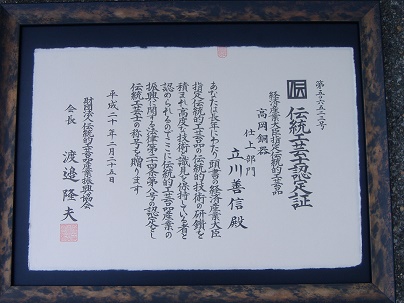 第五六五三号
伝 伝統工芸士認定証
経済産業大臣指定伝統的工芸品
高岡銅器
仕上部門
立川善信殿
あなたは長年にわたり頭書の経済産業大臣
指定伝統的工芸品の伝統的技術の研鑽を
積まれ高度な技術・識見を保持している者と
認められるのでここに伝統的工芸品産業の
振興に関する法律第二十四条第八号の認定をし
伝統工芸士の称号を贈ります
平成二十年二月二十五日
財団法人伝統的工芸品産業振興協会
会長 渡邉隆夫